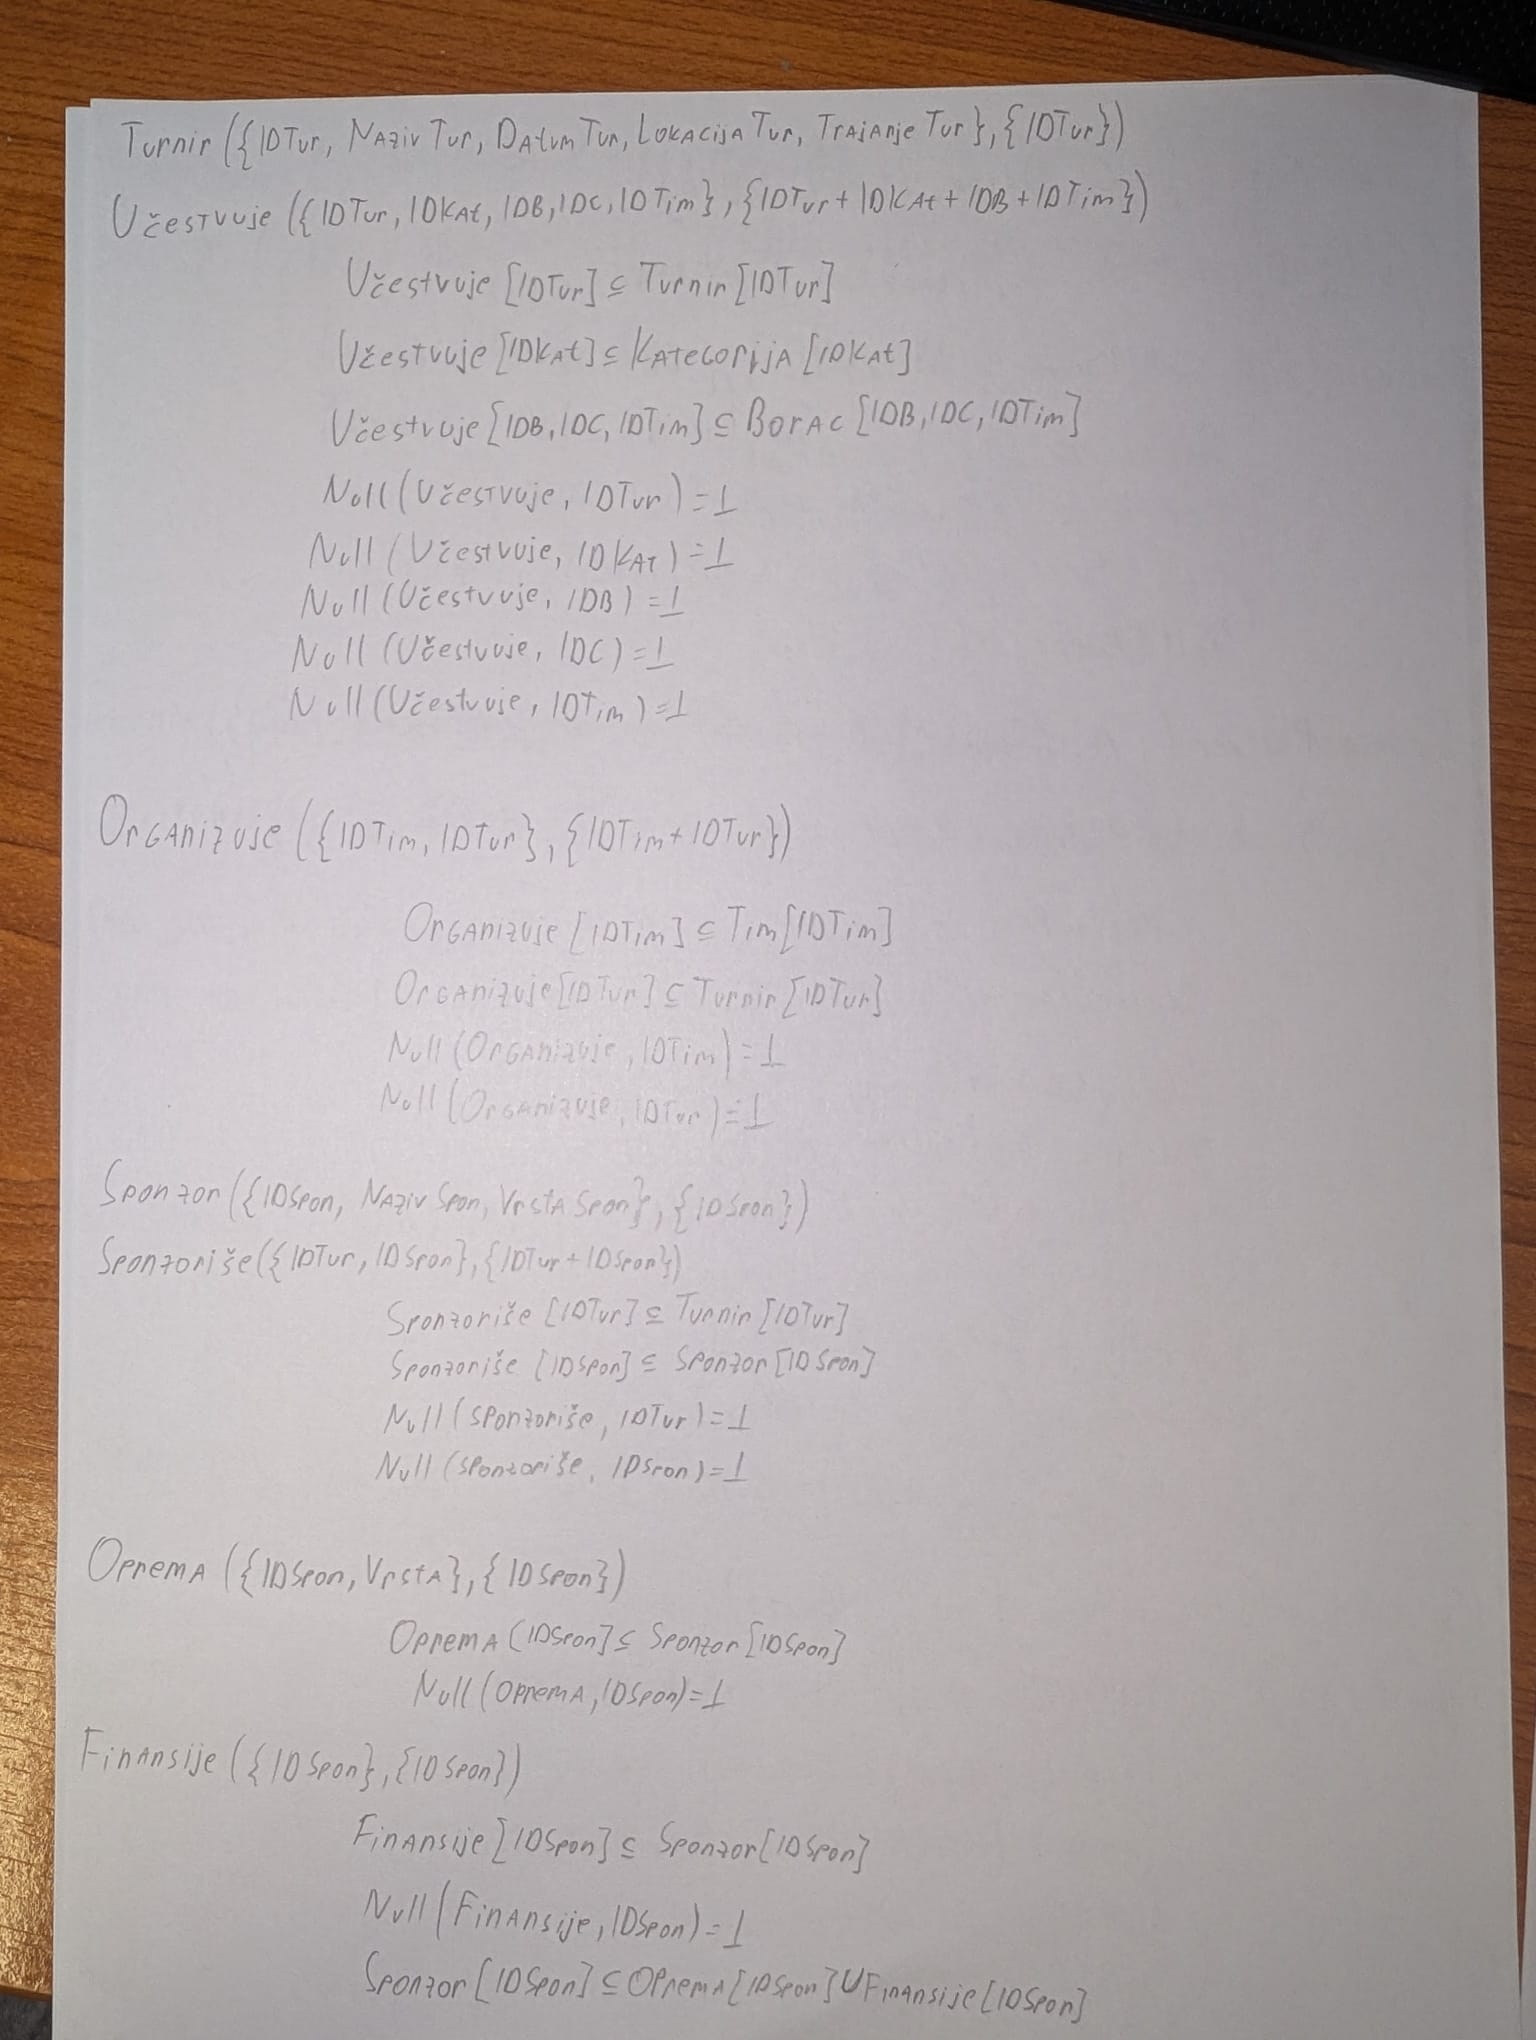 Turnir ({IDTur, NazivTur, DatumTur, LokacijaTur, TrajanjeTur}, {IDTur})
Učestvuje ({IDTur, IDKat, IDB, IDC, IDTim}, {IDTur + IDKat + IDB + IDTim})
Učestvuje [IDTur] ⊆ Turnir [IDTur]
Učestvuje [IDKat] ⊆ Kategorija [IDKat]
Učestvuje [IDB, IDC, IDTim] ⊆ Borac [IDB, IDC, IDTim]
Null (Učestvuje, IDTur) = ⊥
Null (Učestvuje, IDKat) = ⊥
Null (Učestvuje, IDB) = ⊥
Null (Učestvuje, IDC) = ⊥
Null (Učestvuje, IDTim) = ⊥
Organizuje ({IDTim, IDTur}, {IDTim + IDTur})
Organizuje [IDTim] ⊆ Tim [IDTim]
Organizuje [IDTur] ⊆ Turnir [IDTur]
Null (Organizuje, IDTim) = ⊥
Null (Organizuje, IDTur) = ⊥
Sponzor ({IDSpon, NazivSpon, VrstaSpon}, {IDSpon})
Sponzoriše ({IDTur, IDSpon}, {IDTur + IDSpon})
Sponzoriše [IDTur] ⊆ Turnir [IDTur]
Sponzoriše [IDSpon] ⊆ Sponzor [IDSpon]
Null (Sponzoriše, IDTur) = ⊥
Null (Sponzoriše, IDSpon) = ⊥
Oprema ({IDSpon, Vrsta}, {IDSpon})
Oprema (IDSpon] ⊆ Sponzor [IDSpon]
Null (Oprema, IDSpon) = ⊥
Finansije ({IDSpon}, {IDSpon})
Finansije [IDSpon] ⊆ Sponzor [IDSpon]
Null (Finansije, IDSpon) = ⊥
Sponzor [IDSpon] ⊆ Oprema [IDSpon] ∪ Finansije [IDSpon]